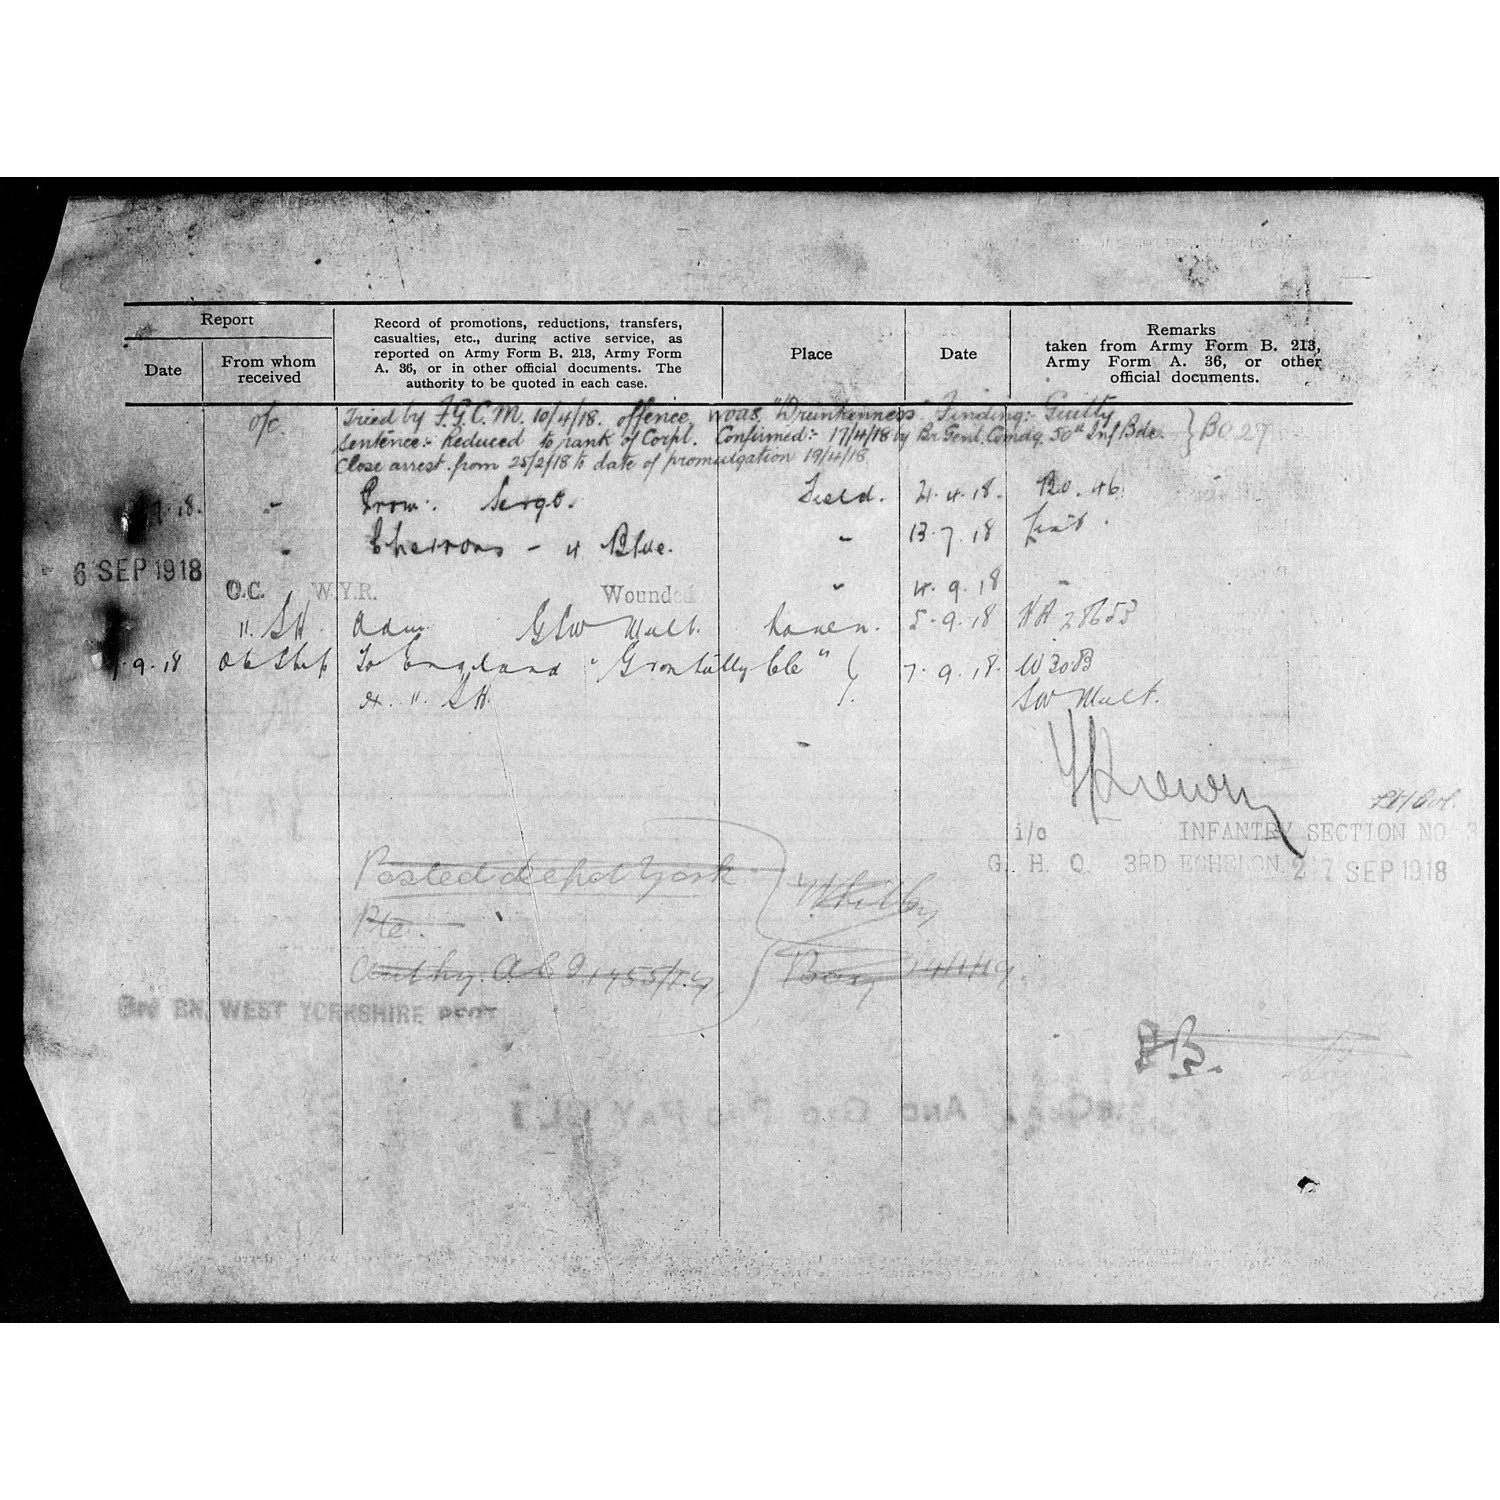 Report
Date
From whom received
Record of promotions, reductions, transfers,
casualties, etc., during active service, as
reported on Army Form B. 213, Army Form
A. 36, or in other official documents. The
authority to be quoted in each case.
Place
Date
Remarks
taken from Army Form B. 213,
Army Form A. 36, or other
official documents.
o/c Tried by F.G.C.M. 10/4/18. offence was "Drunkenness" Finding:- Guilty
Sentence:- Reduced to rank of Corpl. Confirmed:- 17/4/18 by Br Genl. Comdg. 50th Inf Bde. } BO 27
Close arrest from 25/2/18 to date of promulgation 19/4/18
.18. - Prom: Sergt. Field. 21.4.18. Bo. 46
" Chevrons - 4 Blue. " 13.7.18
6 SEP 1918
O.C. W.Y.R. Wounded " 4.9.18 "
11. SH. Adm. GSW Mult. Rouen. 5.9.18 HA 28653
.9.18 OC Ship To England "Grantully Cle" 7.9.18. W3oB
11. SH. SW Mult.
i/c INFANTRY SECTION NO 3
G. H. Q. 3RD ECHELON 27 SEP 1918
Posted depot York
Whitley
Pte.
Bay 14/1/19.
3rd BN. WEST YORKSHIRE REGT